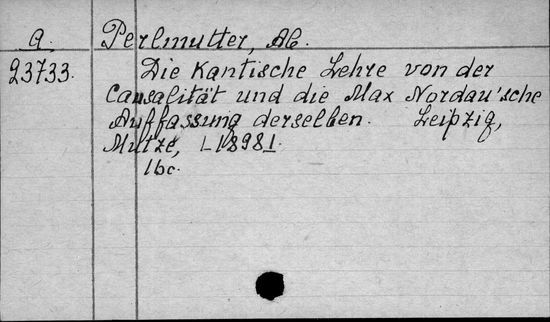 a. Perlmutter, Ab.
23733. Die Kantische Lehre von der
Causalität und die Max Nordau'sche
Auffassung derselben. Leipzig,
Mutze, [1898].